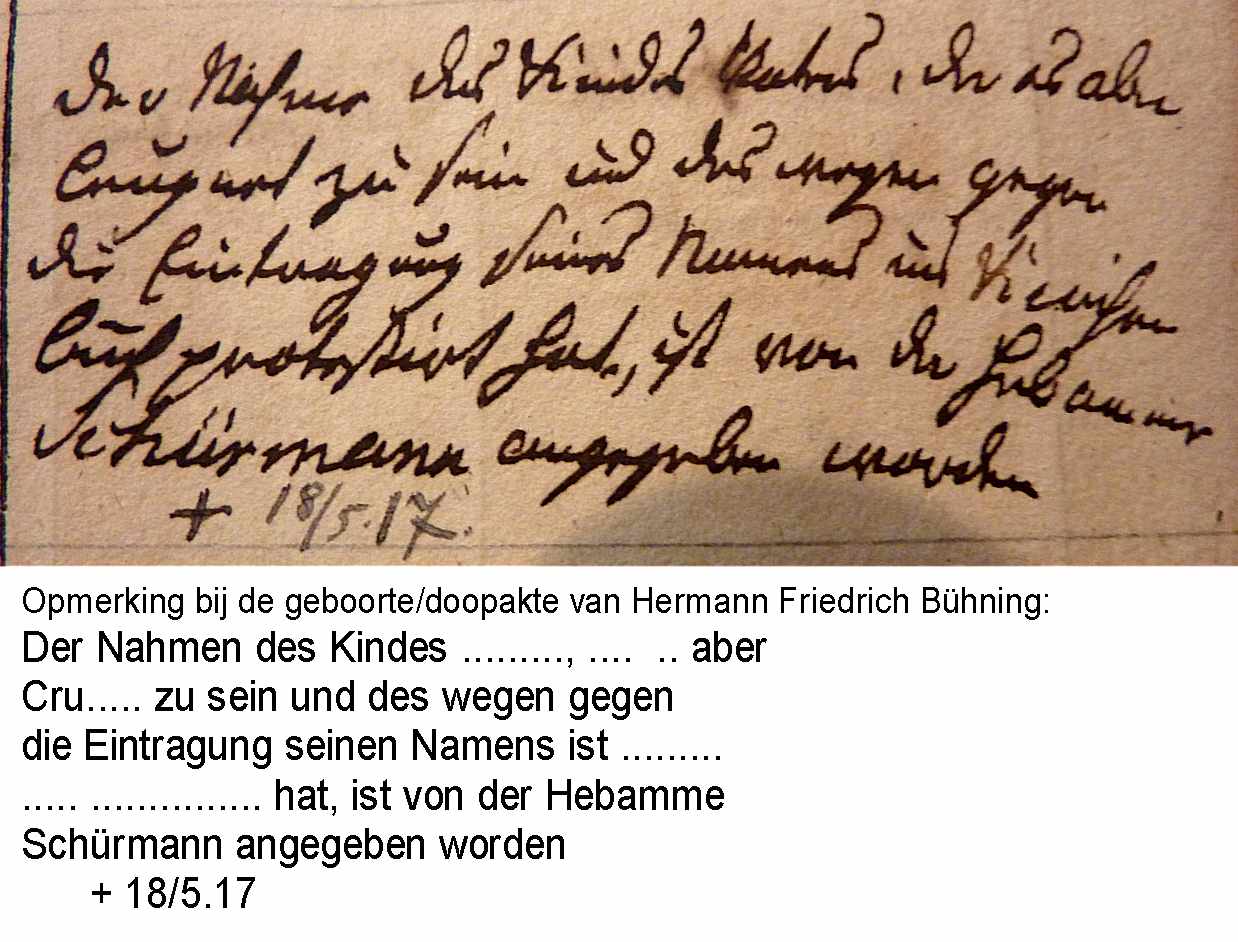 der Nahme des Kindes Vaters, der es aber
leugnet zu sein und des wegen gegen
die Eintragung seines Namens ins Kirchen
buch protestirt hat, ist von der Hebamme
Schürmann angegeben worden
+ 18/5.17.
Opmerking bij de geboorte/doopakte van Hermann Friedrich Bühning:
Der Nahmen des Kindes ........., .... .. aber
Cru..... zu sein und des wegen gegen
die Eintragung seinen Namens ist .........
..... ............... hat, ist von der Hebamme
Schürmann angegeben worden
+ 18/5.17